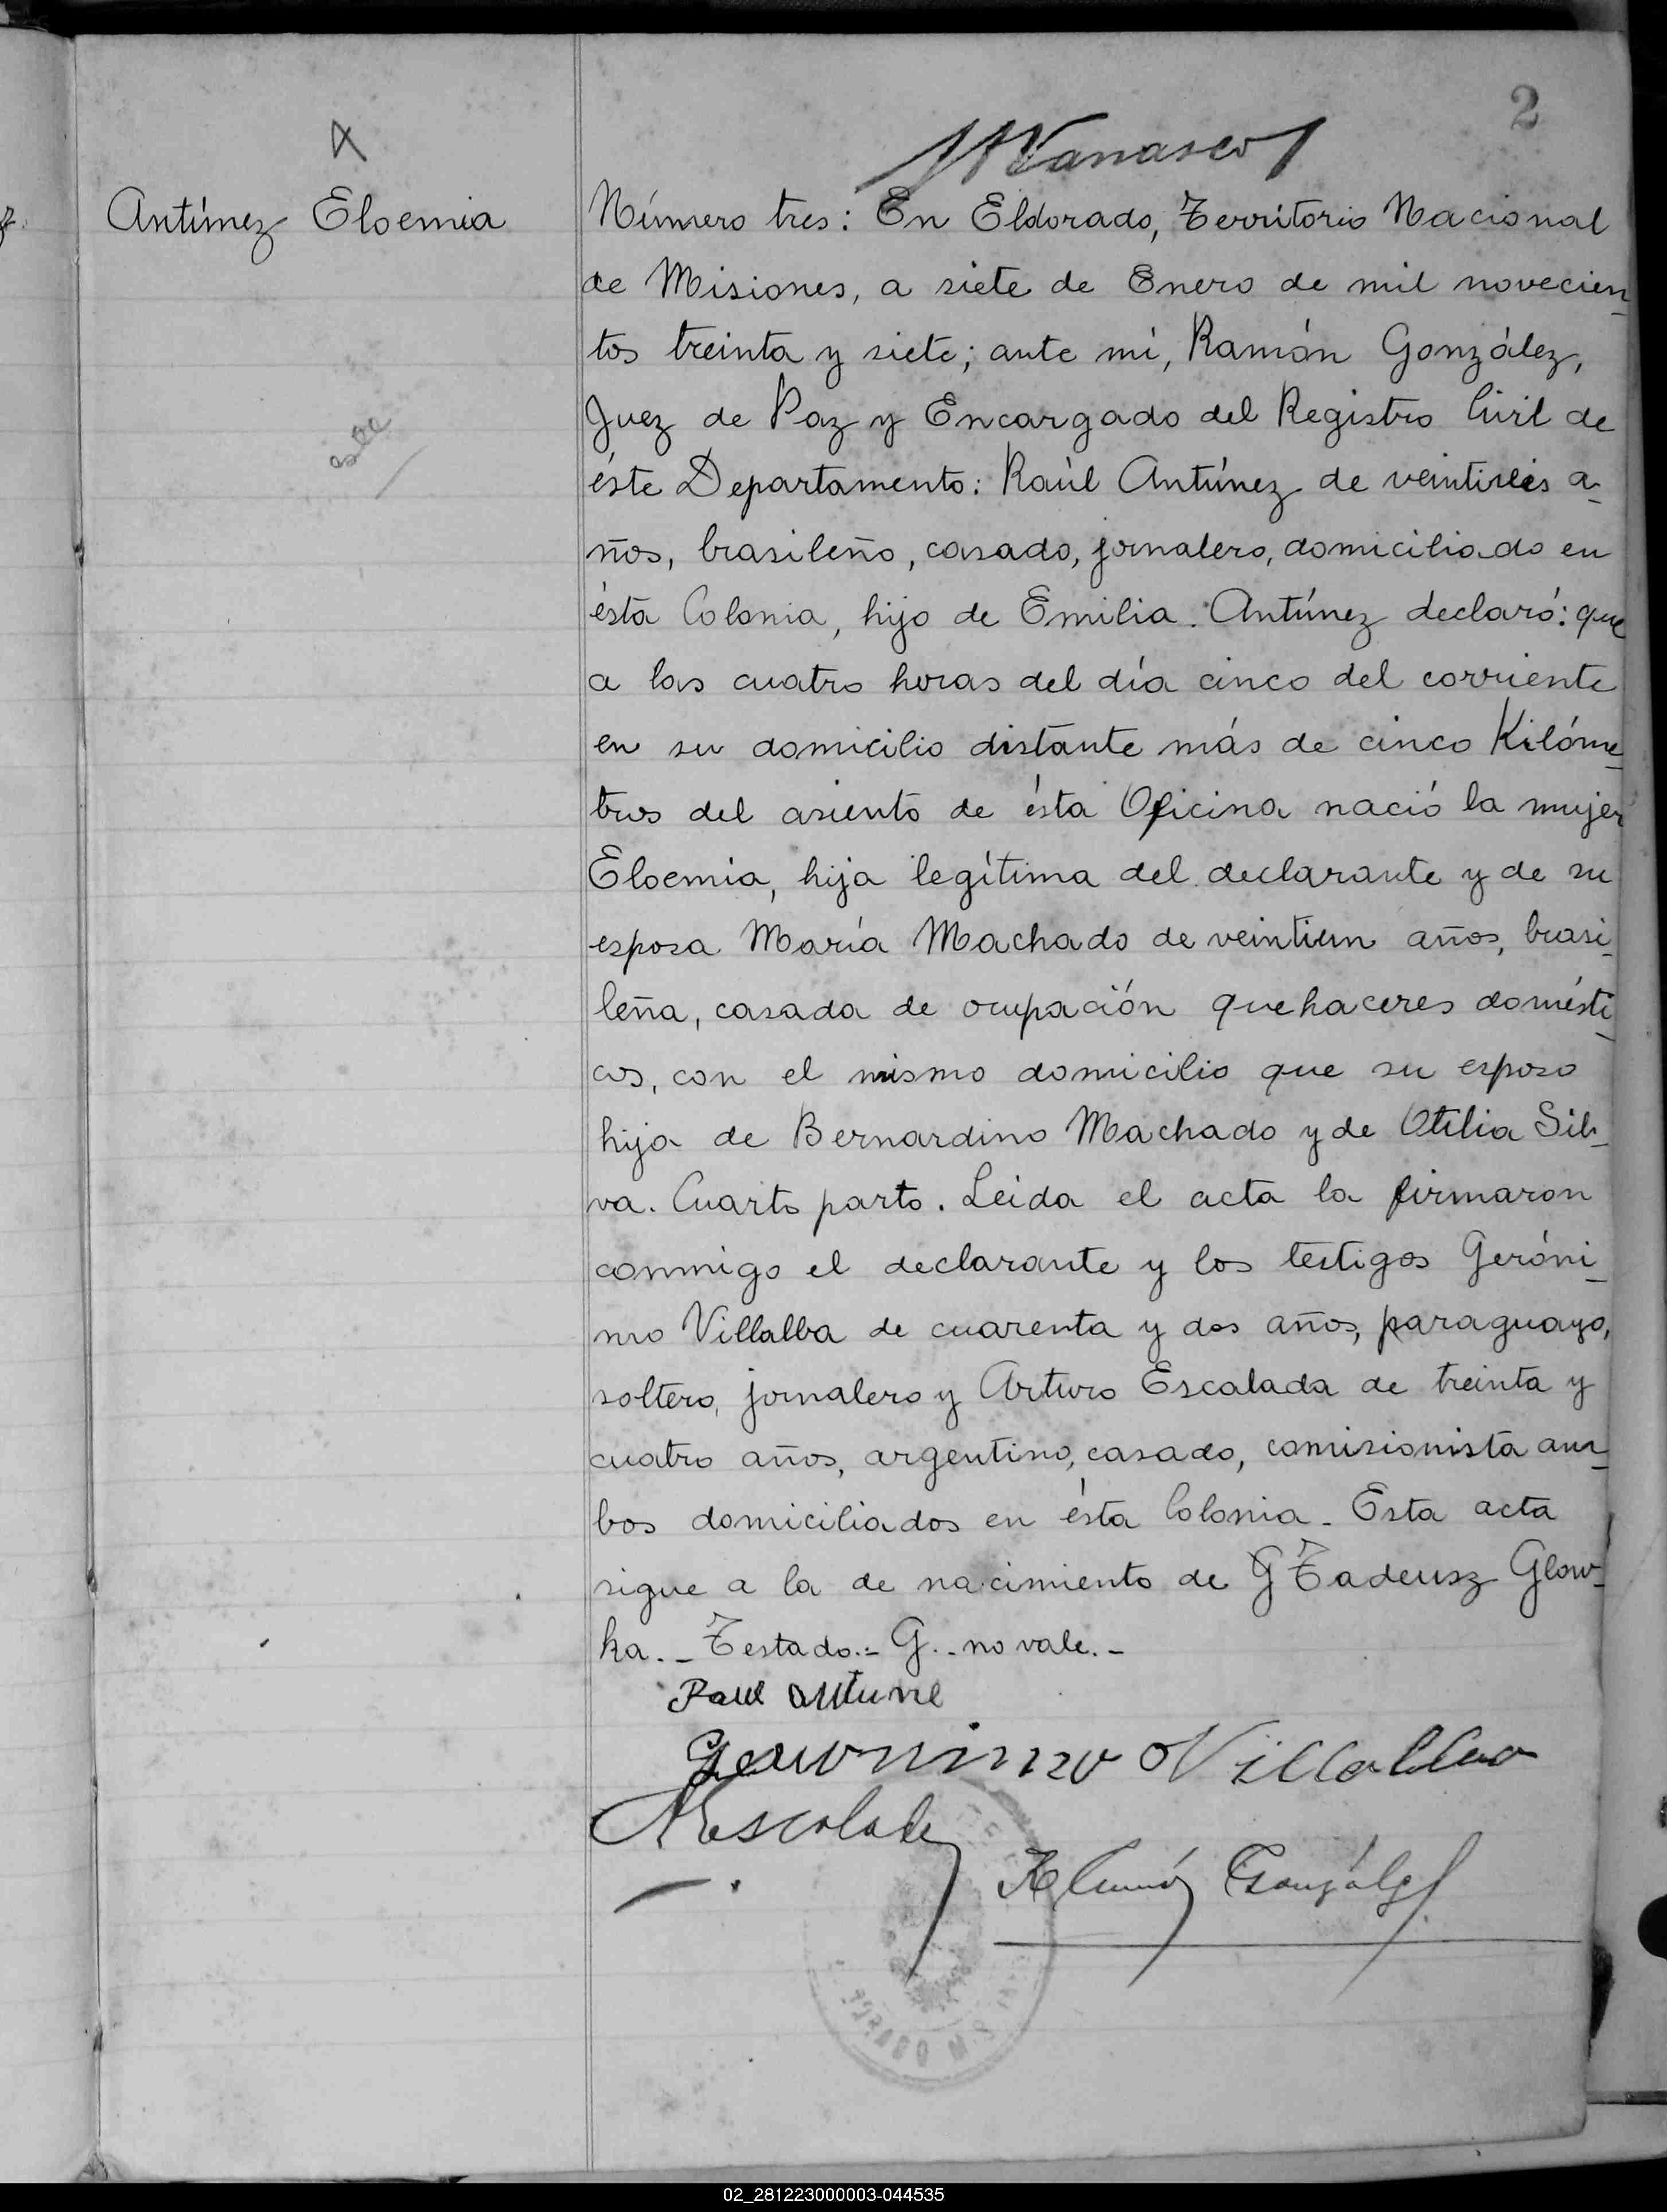 2
Antúnez Eloemia
Número tres: En Eldorado, Territorio Nacional
de Misiones, a siete de Enero de mil novecien
tos treinta y siete; ante mí, Ramón González,
Juez de Paz y Encargado del Registro Civil de
éste Departamento: Raúl Antúnez de veintiseis a-
ños, brasileño, casado, jornalero, domiciliado en
ésta Colonia, hijo de Emilia Antúnez declaró: que
a las cuatro horas del día cinco del corriente
en su domicilio distante más de cinco Kilóme_
tros del asiento de ésta Oficina nació la mujer
Eloemia, hija legítima del declarante y de su
esposa María Machado de veintiun años, brasi_
leña, casada de ocupación quehaceres domésti_
cos, con el mismo domicilio que su esposo
hija de Bernardino Machado y de Otilia Sil_
va. Cuarto parto. Leida el acta la firmaron
conmigo el declarante y los testigos Geróni_
mo Villalba de cuarenta y dos años, paraguayo,
soltero, jornalero y Arturo Escalada de treinta y
cuatro años, argentino, casado, comisionista am_
bos domiciliados en ésta Colonia. Esta acta
sigue a la de nacimiento de G Tadeusz Glow_
ka._ Testado.= G.. no vale.-
Raul Antune
Geronimo Villalba
AEscalada
Ramón González
02_281223000003-044535